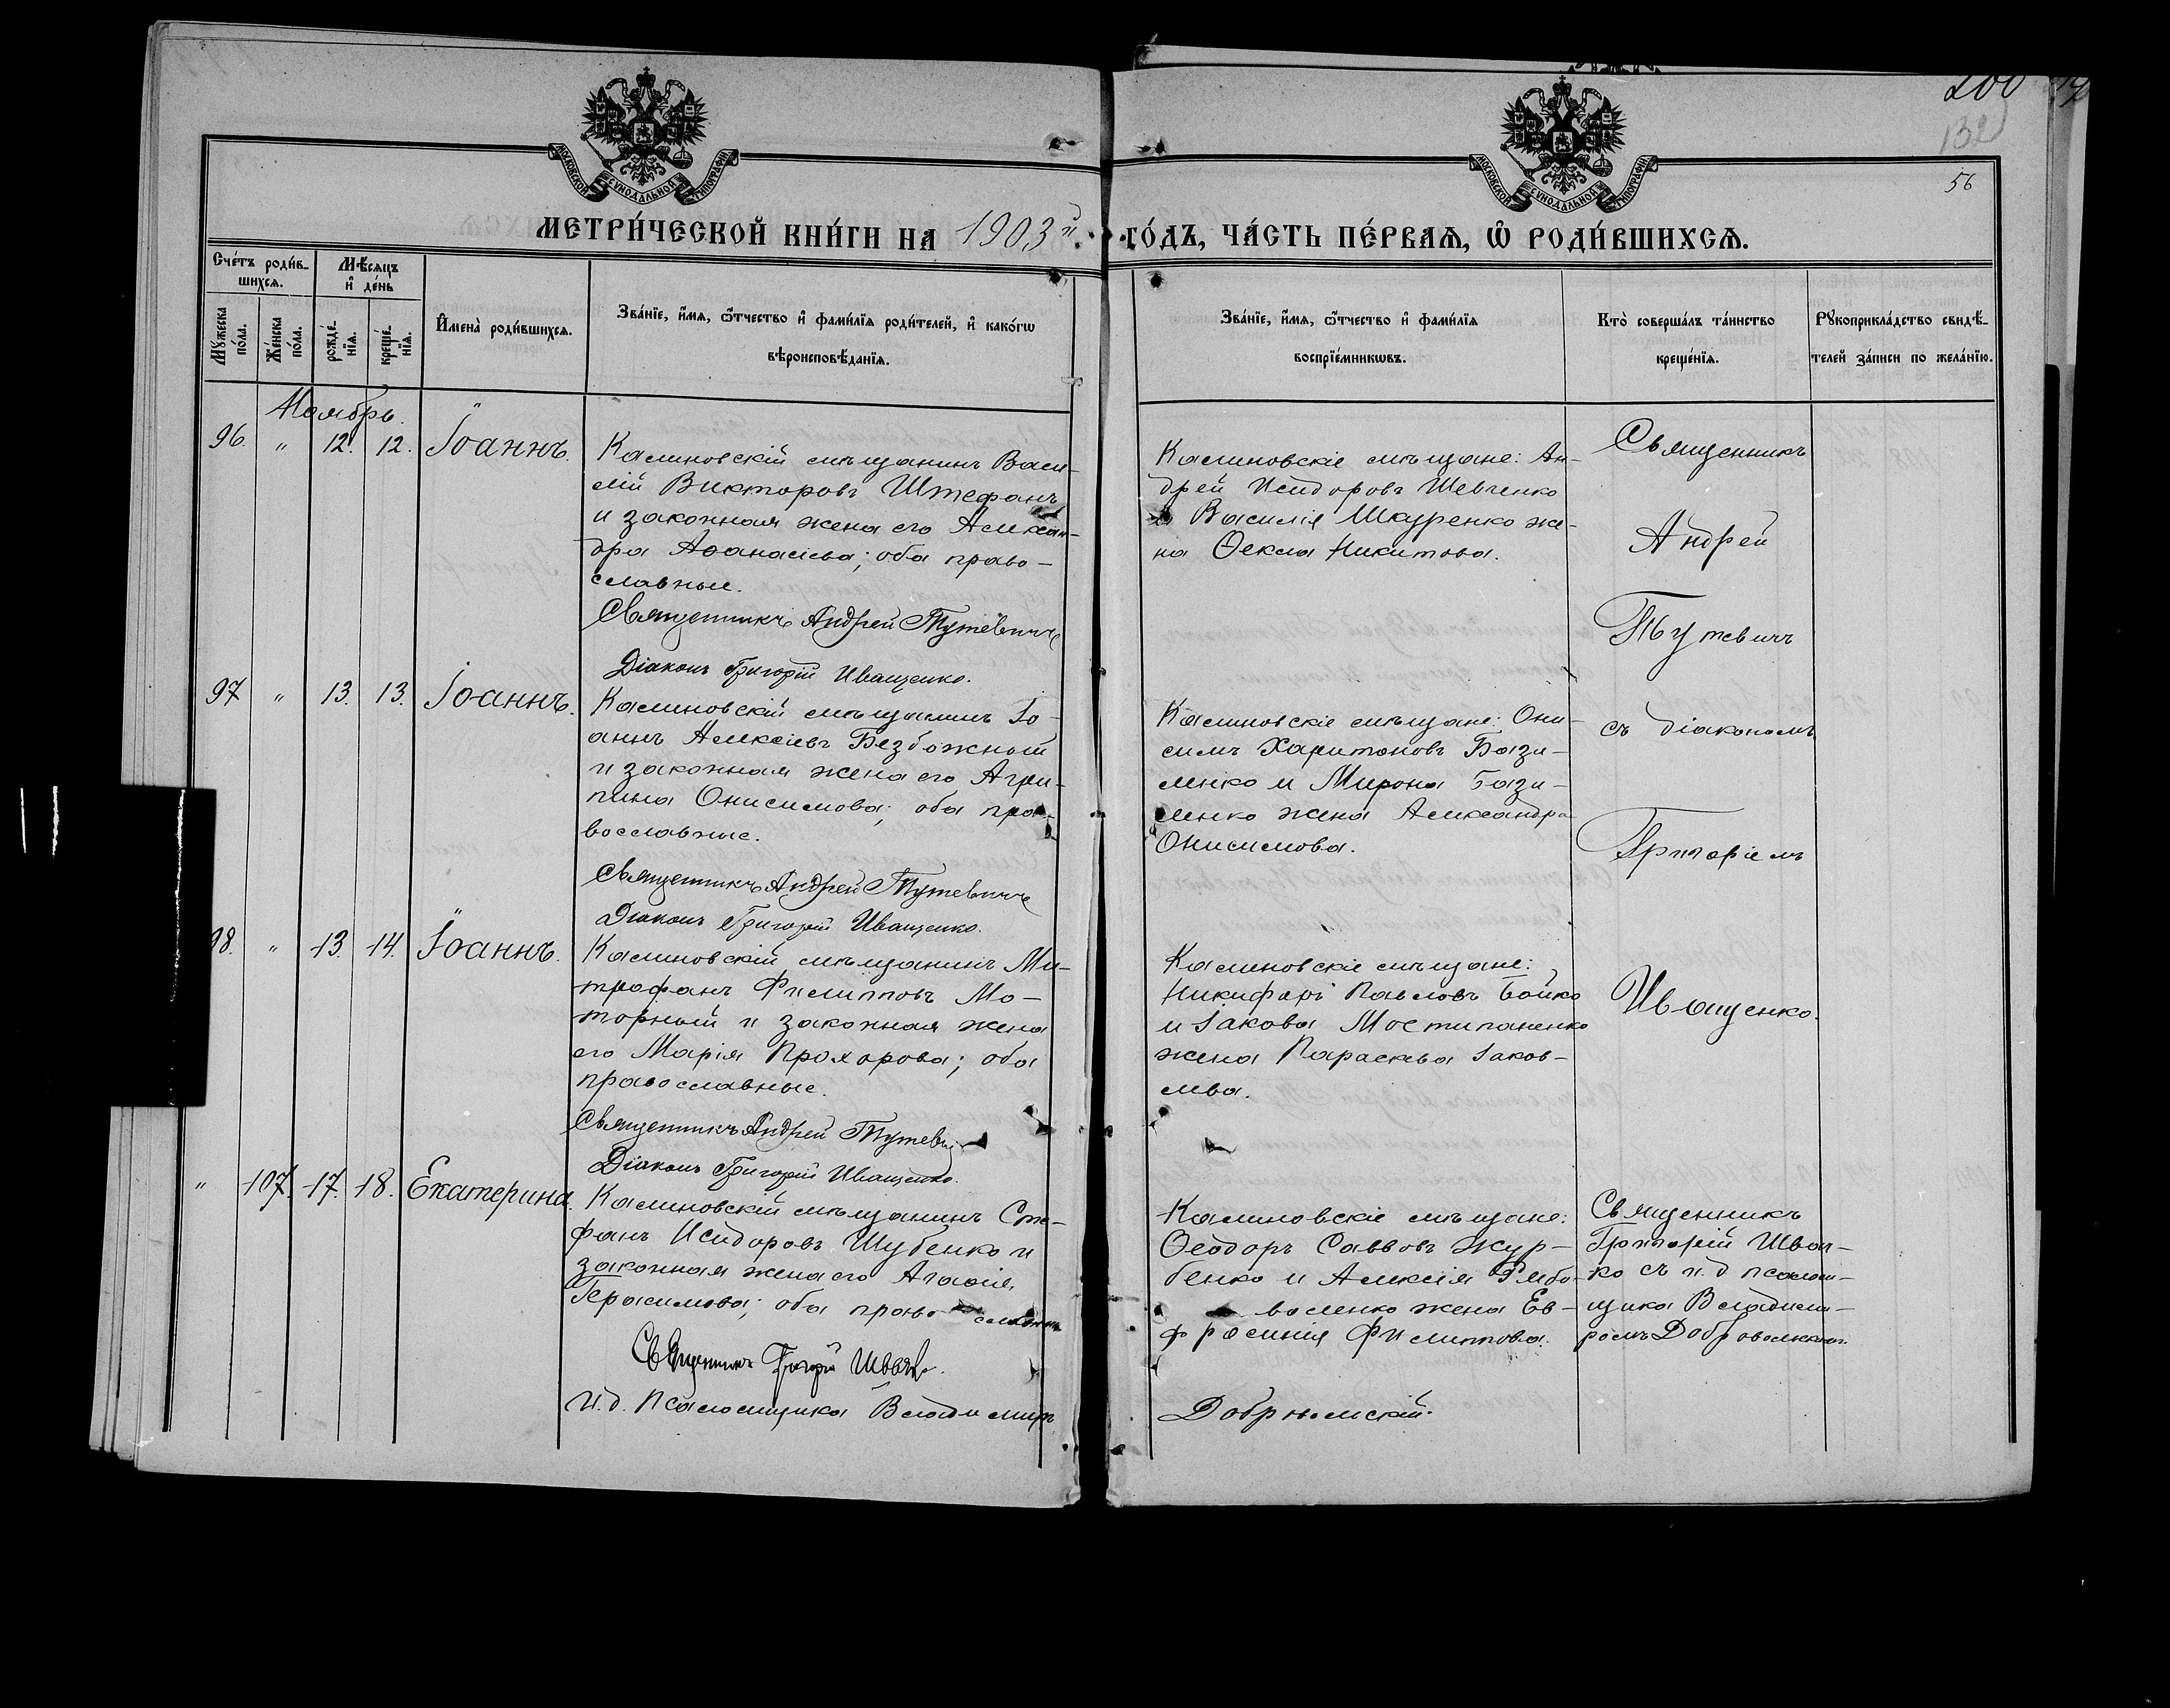 200
132
56
МОСКОВСКОЙ СѴНОДАЛЬНОЙ ТИПОГРАФІИ
МОСКОВСКОЙ СѴНОДАЛЬНОЙ ТИПОГРАФІИ
МЕТРИ́ЧЕСКОЙ КНИ́ГИ НА 1903й
ГО́ДЪ, ЧА́СТЬ ПЕ́РВАЯ, Ѡ҆ РОДИ́ВШИХСЯ.
Сче́тъ роди́в-
шихся.
Мѣ́сяцъ
и҆ де́нь
Мꙋ́жеска по́ла.
Же́нска по́ла.
рожде́-
нїя.
креще́-
нїя.
И҆мена̀ роди́вшихся.
Зва́нїе, и҆́мя, ѻ҆́тчество и҆ фами́лїя роди́телей, и҆ како́гѡ
вѣроисповѣ́данїя.
Зва́нїе, и҆́мя, ѻ҆́тчество и҆ фами́лїя
воспрїе́мникѡвъ.
Кто̀ соверша́лъ та́инство
креще́нїя.
Рꙋкоприкла́дство свидѣ́-
телей за́писи по жела́нїю.
Ноябрь.
96. " 12. 12. Іоаннъ.
Калиновскій мѣщанинъ Васи-
лій Викторовъ Штефанъ
и законная жена его Алексан-
дра Аѳанасіева; оба право-
славные.
Священникъ Андрей Тутевичъ
Діаконъ Григорій Иващенко.
Калиновскіе мѣщане: Ан-
дрей Исидоровъ Шевченко
и Василія Шкуренко же-
на Ѳекла Никитова.
Священникъ
Андрей
Тутевичъ
97 " 13. 13. Іоаннъ.
Калиновскій мѣщанинъ Іо-
аннъ Алексіевъ Безбожный
и законная жена его Агри-
пина Онисимова; оба пра-
вославные.
Священникъ Андрей Тутевичъ
Діаконъ Григорій Иващенко.
Калиновскіе мѣщане: Они-
симъ Харитоновъ Бази-
ленко и Мирона Бази-
ленко жена Александра
Онисимова.
съ діакономъ
Григоріемъ
98. " 13. 14. Іоаннъ.
Калиновскій мѣщанинъ Ми-
трофанъ Филипповъ Мо-
торный и законная жена
его Марія Прохорова; оба
православные.
Священникъ Андрей Тутеви
Діаконъ Григорій Иващенко.
Калиновскіе мѣщане:
Никифоръ Павловъ Бойко
и Іакова Мостипаненко
жена Параскева Іаков-
лева.
Иващенко.
" 107. 17. 18. Екатерина.
Калиновскій мѣщанинъ Сте-
фанъ Исидоровъ Шубенко и
законная жена его Агаѳія
Герасимова; оба православные
Священникъ Григорій Швайко.
И. д. псаломщика Владимиръ
Калиновскіе мѣщане:
Ѳеодоръ Саввовъ Жур-
бенко и Алексія Рябо-
воленко жена Ев-
фросинія Филиппова.
Добровольскій.
Священникъ
Григорій Швай-
ко съ и. д. псалом-
щика Владими-
ромъ Добровольскимъ.